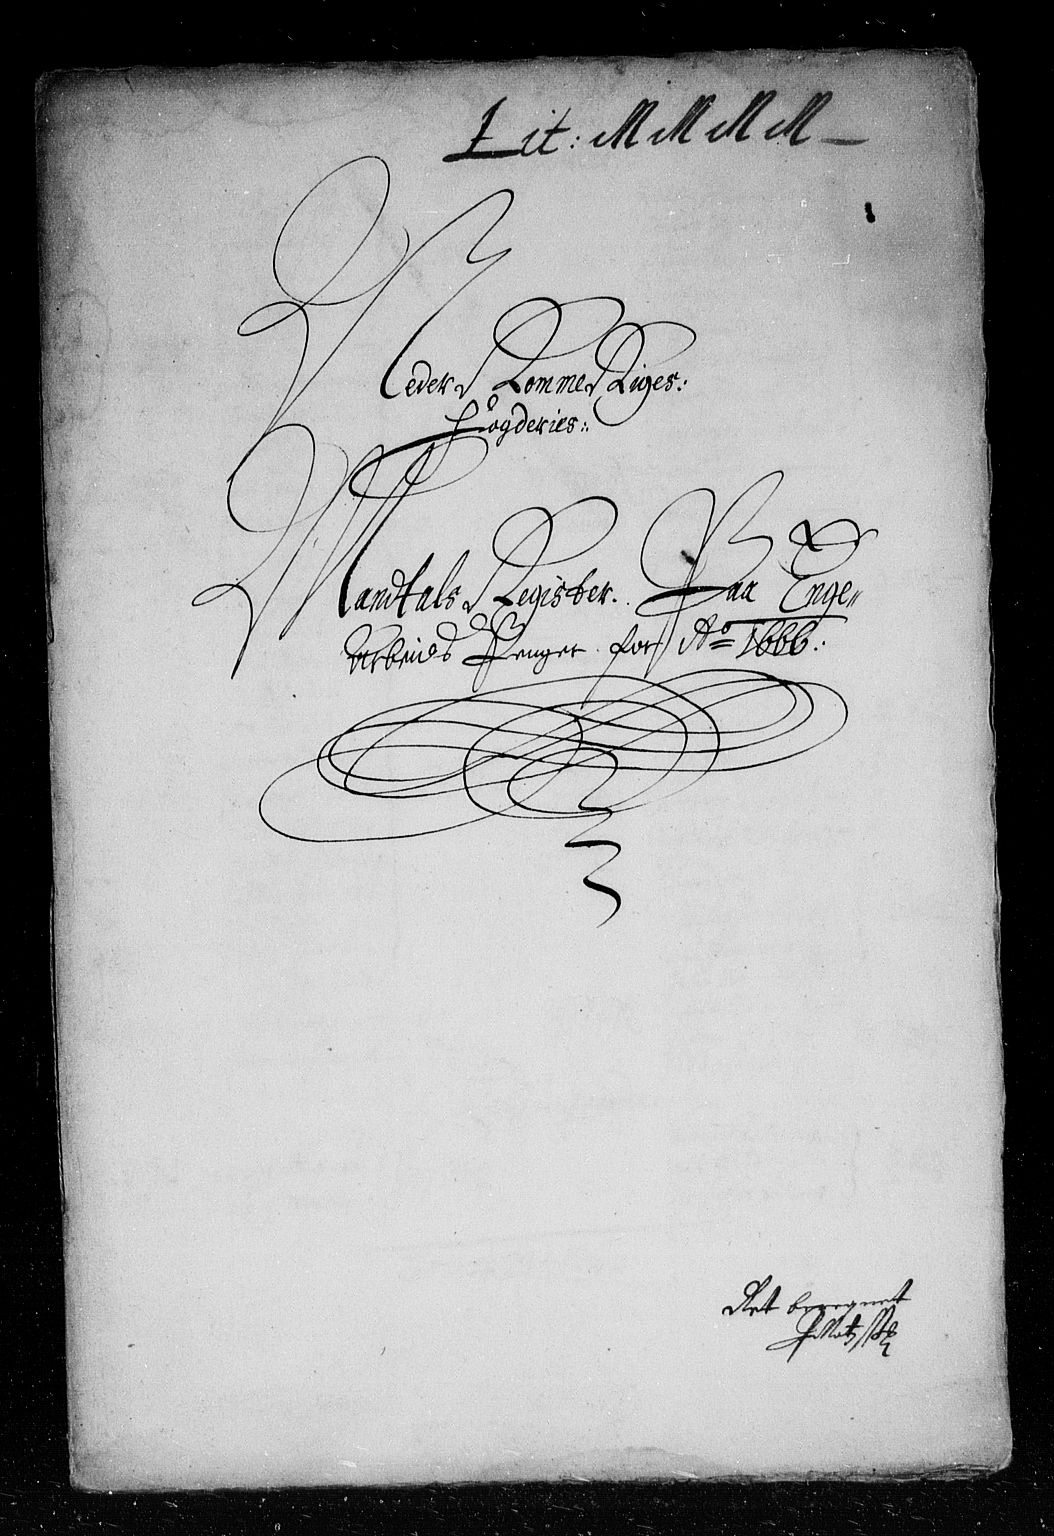 Lit: M M M M
Neder Romme Riges:
Fögderies::
Mandtals Register. Paa Enge„
Arbeids Penger for Aº 1666:
Ret beregnet